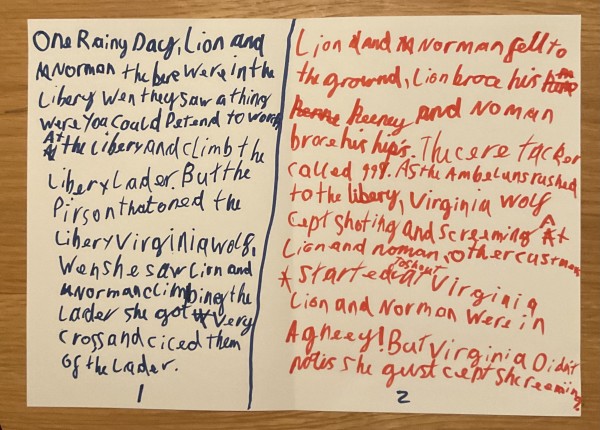 One Rainy Dacy, Lion and
Norman the bere were in the
Libery wen they saw a thing
were you could Petend to worck
At the Libery and climb the
Libery Lader. But the
Pirson that oned the
Libery Virginia wolf,
Wen she saw Lion and
Norman climbing the
Lader she got very
cross and ciced them
of the Lader.
1
Lion and Norman fell to
the grownd, Lion broce his
Keeney and Noman
broce his hips. Thucere tacker
called 999. As the Ambeluns rushed
to the libery, Virginia wolf
cept shoting and screeming At
Lion and noman, other custmers
started to shout at Virginia
Lion and Norman were in
Agneey! But Virginia Didn't
notis she gust cept shcreaming
2